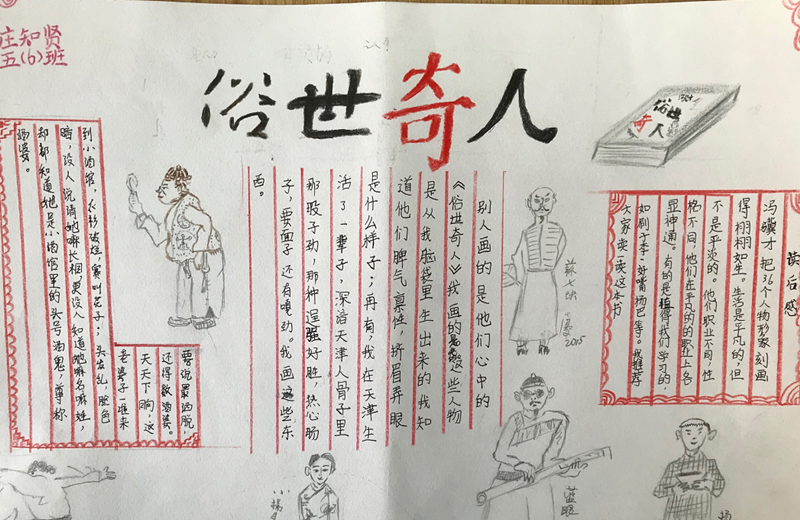 庄知贤
五(6)班
俗世奇人
俗世
奇人
读后感
冯骥才把36个人物形象刻画
得栩栩如生。生活是平凡的,但
不是平淡的。他们职业不同,性
格不同,他们在平凡的的职业上各
显神通。有的是值得我们学习的,
如刷子李、好嘴杨巴等。我推荐
大家读一读这本书
别人画的是他们心中的
《俗世奇人》我画的是这些人物
是从我脑袋里生出来的我知
道他们脾气禀性,挤眉弄眼
是什么样子;再有,我在天津生
活了一辈子,深谙天津人骨子里
那股子劲,那种逞强好胜,热心肠
子,要面子还有嘎劲。我画这些东
西。
要说最洒脱,
还得数酒婆。
天天下晌,这
老婆子一准来
到小酒馆,衣衫破烂,赛叫花子;头发乱,脸色
黯,没人说清她嘛长相,更没人知道她嘛名嘛姓,
却都知道她是小酒馆里的头号酒鬼,尊称
酒婆。
苏七块
2015
蓝眼
小杨月
杨